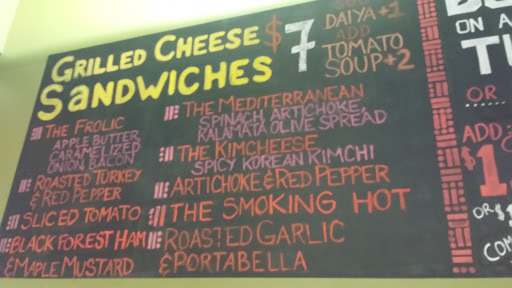 GRILLED CHEESE
SANDWICHES
$7
DAIYA +1
ADD
TOMATO
SOUP +2
THE FROLIC
APPLE BUTTER
CARAMELIZED
ONION BACON
ROASTED TURKEY
& RED PEPPER
SLICED TOMATO
BLACK FOREST HAM
& MAPLE MUSTARD
THE MEDITERRANEAN
SPINACH, ARTICHOKE,
KALAMATA OLIVE SPREAD
THE KIMCHEESE
SPICY KOREAN KIMCHI
ARTICHOKE & RED PEPPER
THE SMOKING HOT
ROASTED GARLIC
& PORTABELLA
ON A
OR
ADD
$1
OR $